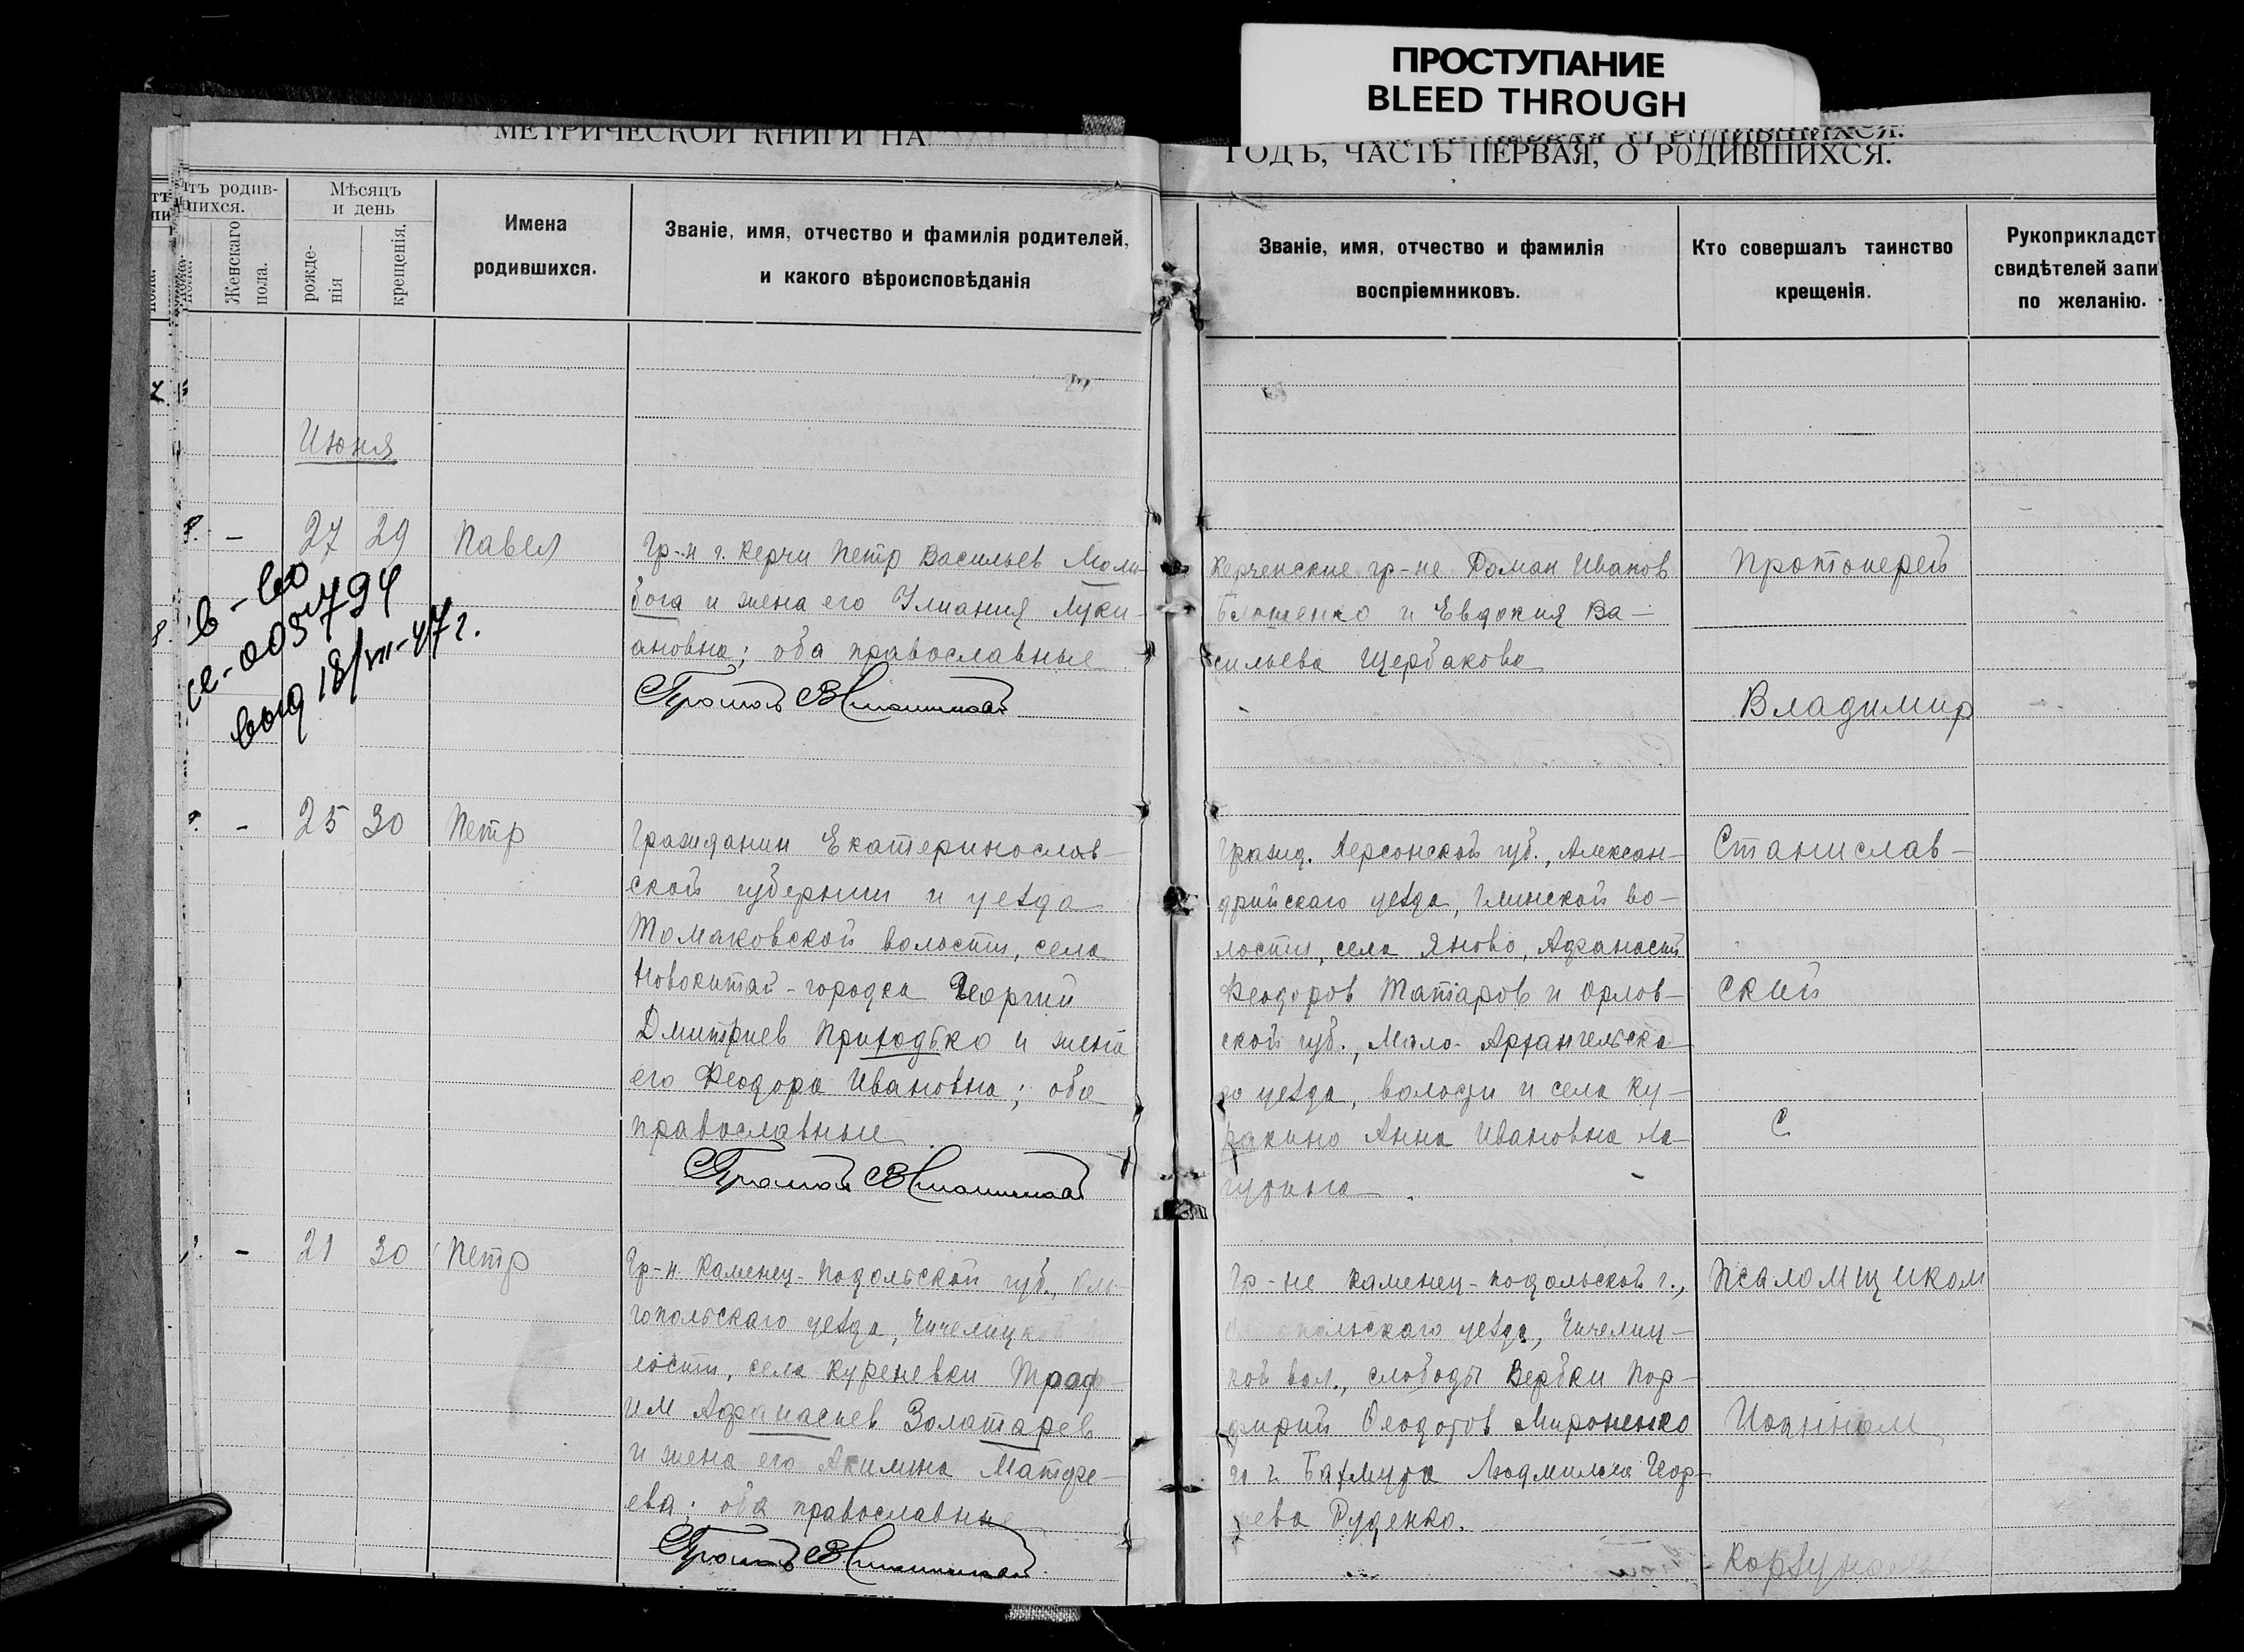 ПРОСТУПАНИЕ
BLEED THROUGH
МЕТРИЧЕСКОЙ КНИГИ НА
ГОДЪ, ЧАСТЬ ПЕРВАЯ, О РОДИВШИХСЯ.
родив-
шихся.
Женскаго
пола.
Мѣсяцъ
и день
рожде-
нія
крещенія.
Имена
родившихся.
Званіе, имя, отчество и фамилія родителей,
и какого вѣроисповѣданія
Званіе, имя, отчество и фамилія
воспріемниковъ.
Кто совершалъ таинство
крещенія.
Рукоприкладст
свидѣтелей запи
по желанію.
Июня
- 27 29 Павел
Гр-н г. Керчи Петр Васильев Моли-
бога и жена его Улиания Луки-
ановна; оба православные
Керченские гр-не Роман Иванов
Блошенко и Евдокия Ва-
сильева Щербакова
Протоиерей
Владимир
в-во
005794
выд 18/VII-47г.
- 25 30 Петр
Гражданин Екатеринослав-
ской губернии и уѣзда
Томаковской волости, села
Новокитай-городка Георгий
Дмитриев Приходько и жена
его Феодора Ивановна; оба
православные
Гражд. Херсонской губ., Алексан-
дрийскаго уѣзда, Глинской во-
лости, села Яново, Афанасий
Феодоров Татаров и Орлов-
ской губ., Мало-Архангельска-
го уѣзда, волости и села Ку-
ракино Анна Ивановна Ла-
Станислав-
ский
С
- 21 30 Петр
Гр-н Каменец-Подольской губ., Оль-
гопольскаго уѣзда,
лости, села Куреневки Троф-
им Афанасиев Золотарев
и жена его Акилина Матфе-
ева; оба православные
Гр-не Каменец-Подольской г.,
польскаго уѣзда, Чечелиц-
кой вол., слободы Вербки Пор-
фирий Феодотов Мироненко
и г. Бахмута Людмилла Геор-
гиева Руденко.
Псаломщиком
Иоанном